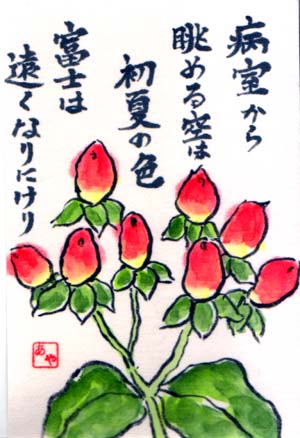 病室から
眺める空は
初夏の色
富士は
遠くなりにけり
あや